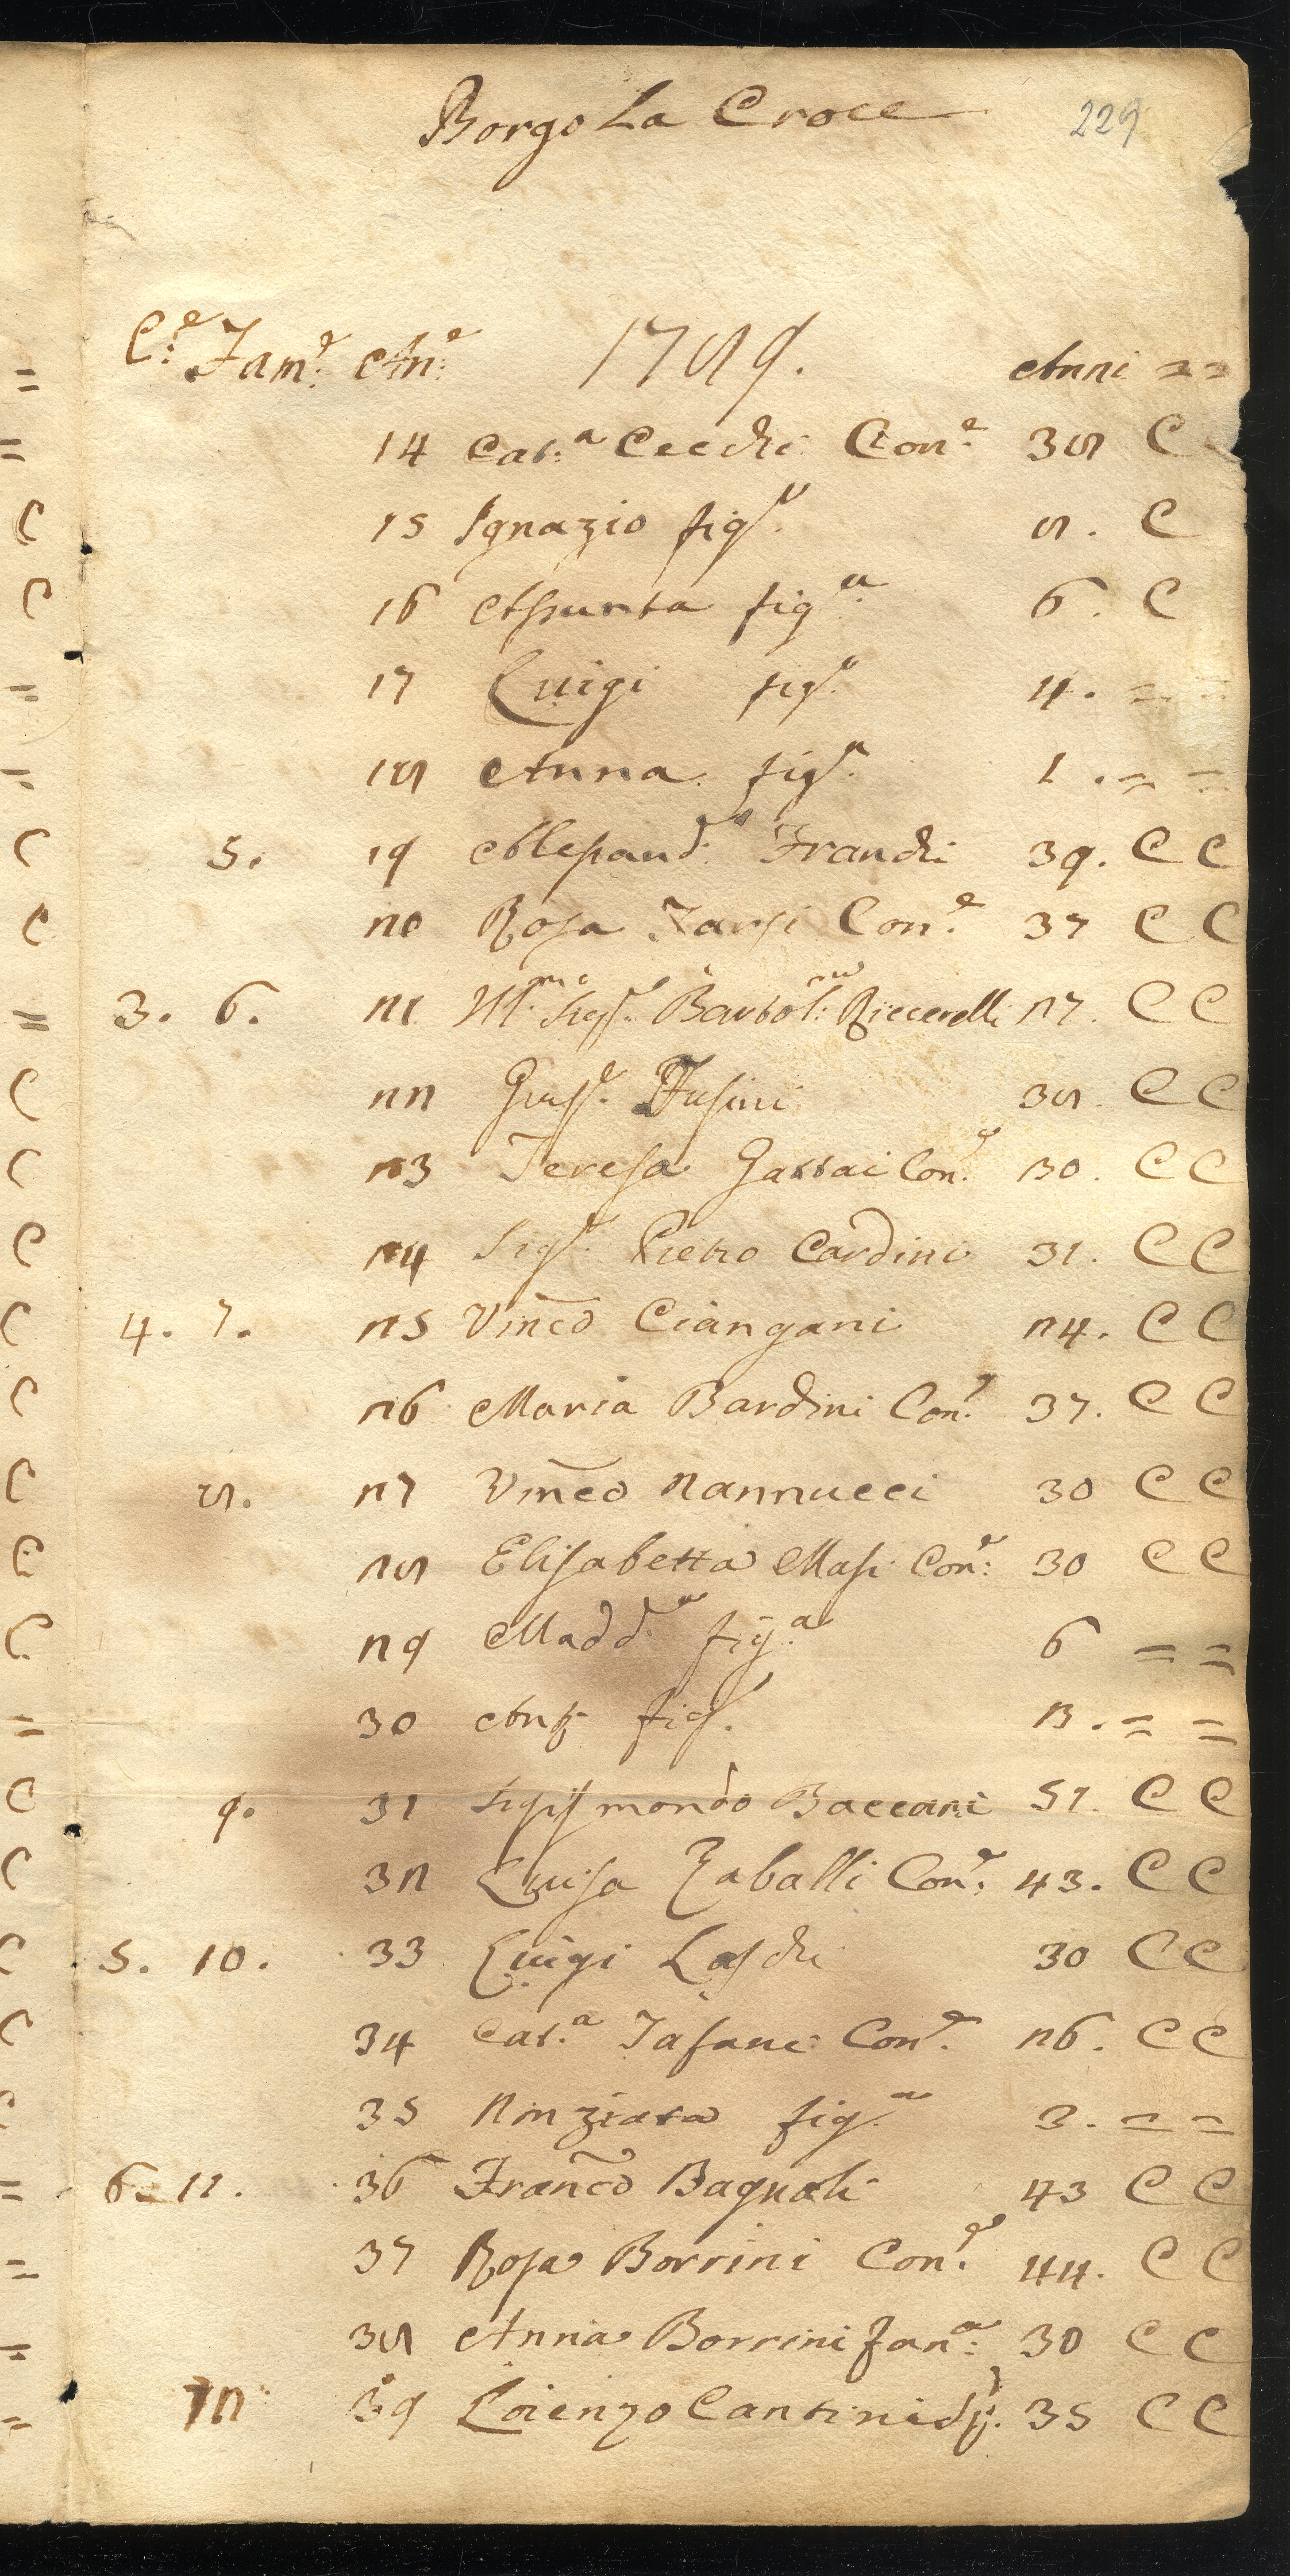 Borgo La Croce 229
C:e Fam:e An:e 1789. Anni = =
14 Cat:a Cecchi Con:e 38 C
15 Ignazio fig:o 8. C
16 Assunta fig:a 6. C
17 Luigi fig:o 4. = =
18 Anna fig:a 1. = =
5. 19 Alessand:o Franchi 39. C C
20 Rosa Farsi Con:e 37 C C
3. 6. 21 Ill:mo Sig:e Bartol:meo Riccerelli 27. C C
22 Gius:e Fusini 38. C C
23 Teresa Gattai Con:e 30. C C
24 Sig:e Pietro Cardini 31. C C
4. 7. 25 Vinco Ciangani 24. C C
26 Maria Bardini Con:e 37. C C
8. 27 Vinco Nannucci 30 C C
28 Elisabetta Masi Con:e 30 C C
29 Madd:a fig:a 6 = =
30 Anto fig:o = =
9. 31 Sigismondo Baccani 51. C C
32 Luisa Zaballi Con:e 43. C C
5. 10. 33 Luigi Laschi 30 C C
34 Cat:a Tafani Con:e 26. C C
35 Nunziata fig:a 3. = =
6. 11. 36 Franco Bagnoli 43 C C
37 Rosa Borrini Con:e 44. C C
38 Anna Borrini Fan:a 30 C C
12 39 Lorenzo Cantini 35 C C